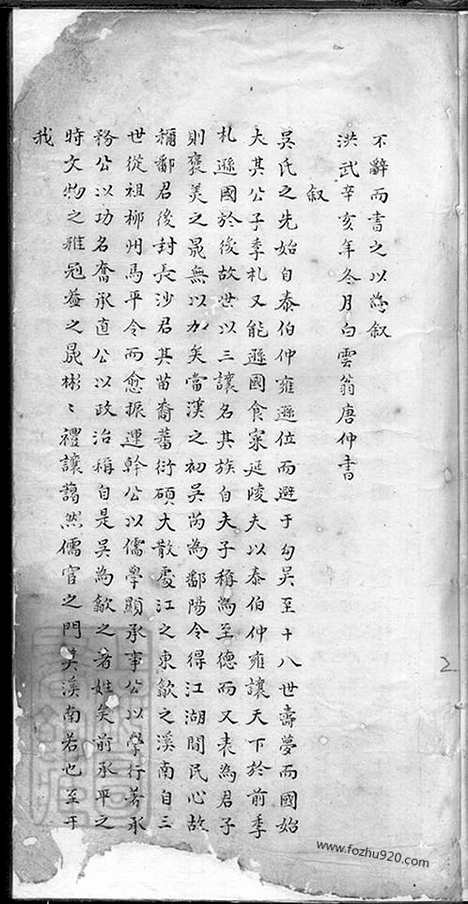 不辭而書之以為敘
洪武辛亥年冬月白雲翁唐仲書
敘
吳氏之先始自泰伯仲雍遜位而避于勾吳至十八世壽夢而國始
大其公子季札又能遜國食寀延陵夫以泰伯仲雍讓天下於前季
札遜國於後故世以三讓名其族自夫子稱為至德而又表為君子
則褒美之晁無以加矣當漢之初吳芮為鄱陽令得江湖間民心故
稱鄱君後封長沙君其苗裔蕃衍碩大散處江之東歙之溪南自三
世從祖柳州馬平令而愈振運幹公以儒學顯承事公以學行著承
務公以功名奮承直公以政治稱自是吳為歙之著姓矣前承平之
時文物之雅冠蓋之晁彬〻禮讓藹然儒官之門吳溪南若也至于
我
2
www.fozhu920.com